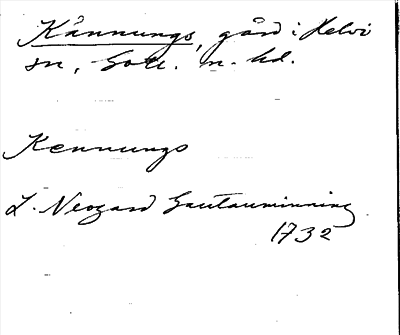 Kännungs, gård i Helvi
sn, Gotl. n. hd.
Kennungs
L. Neogard Gautauminning
1732